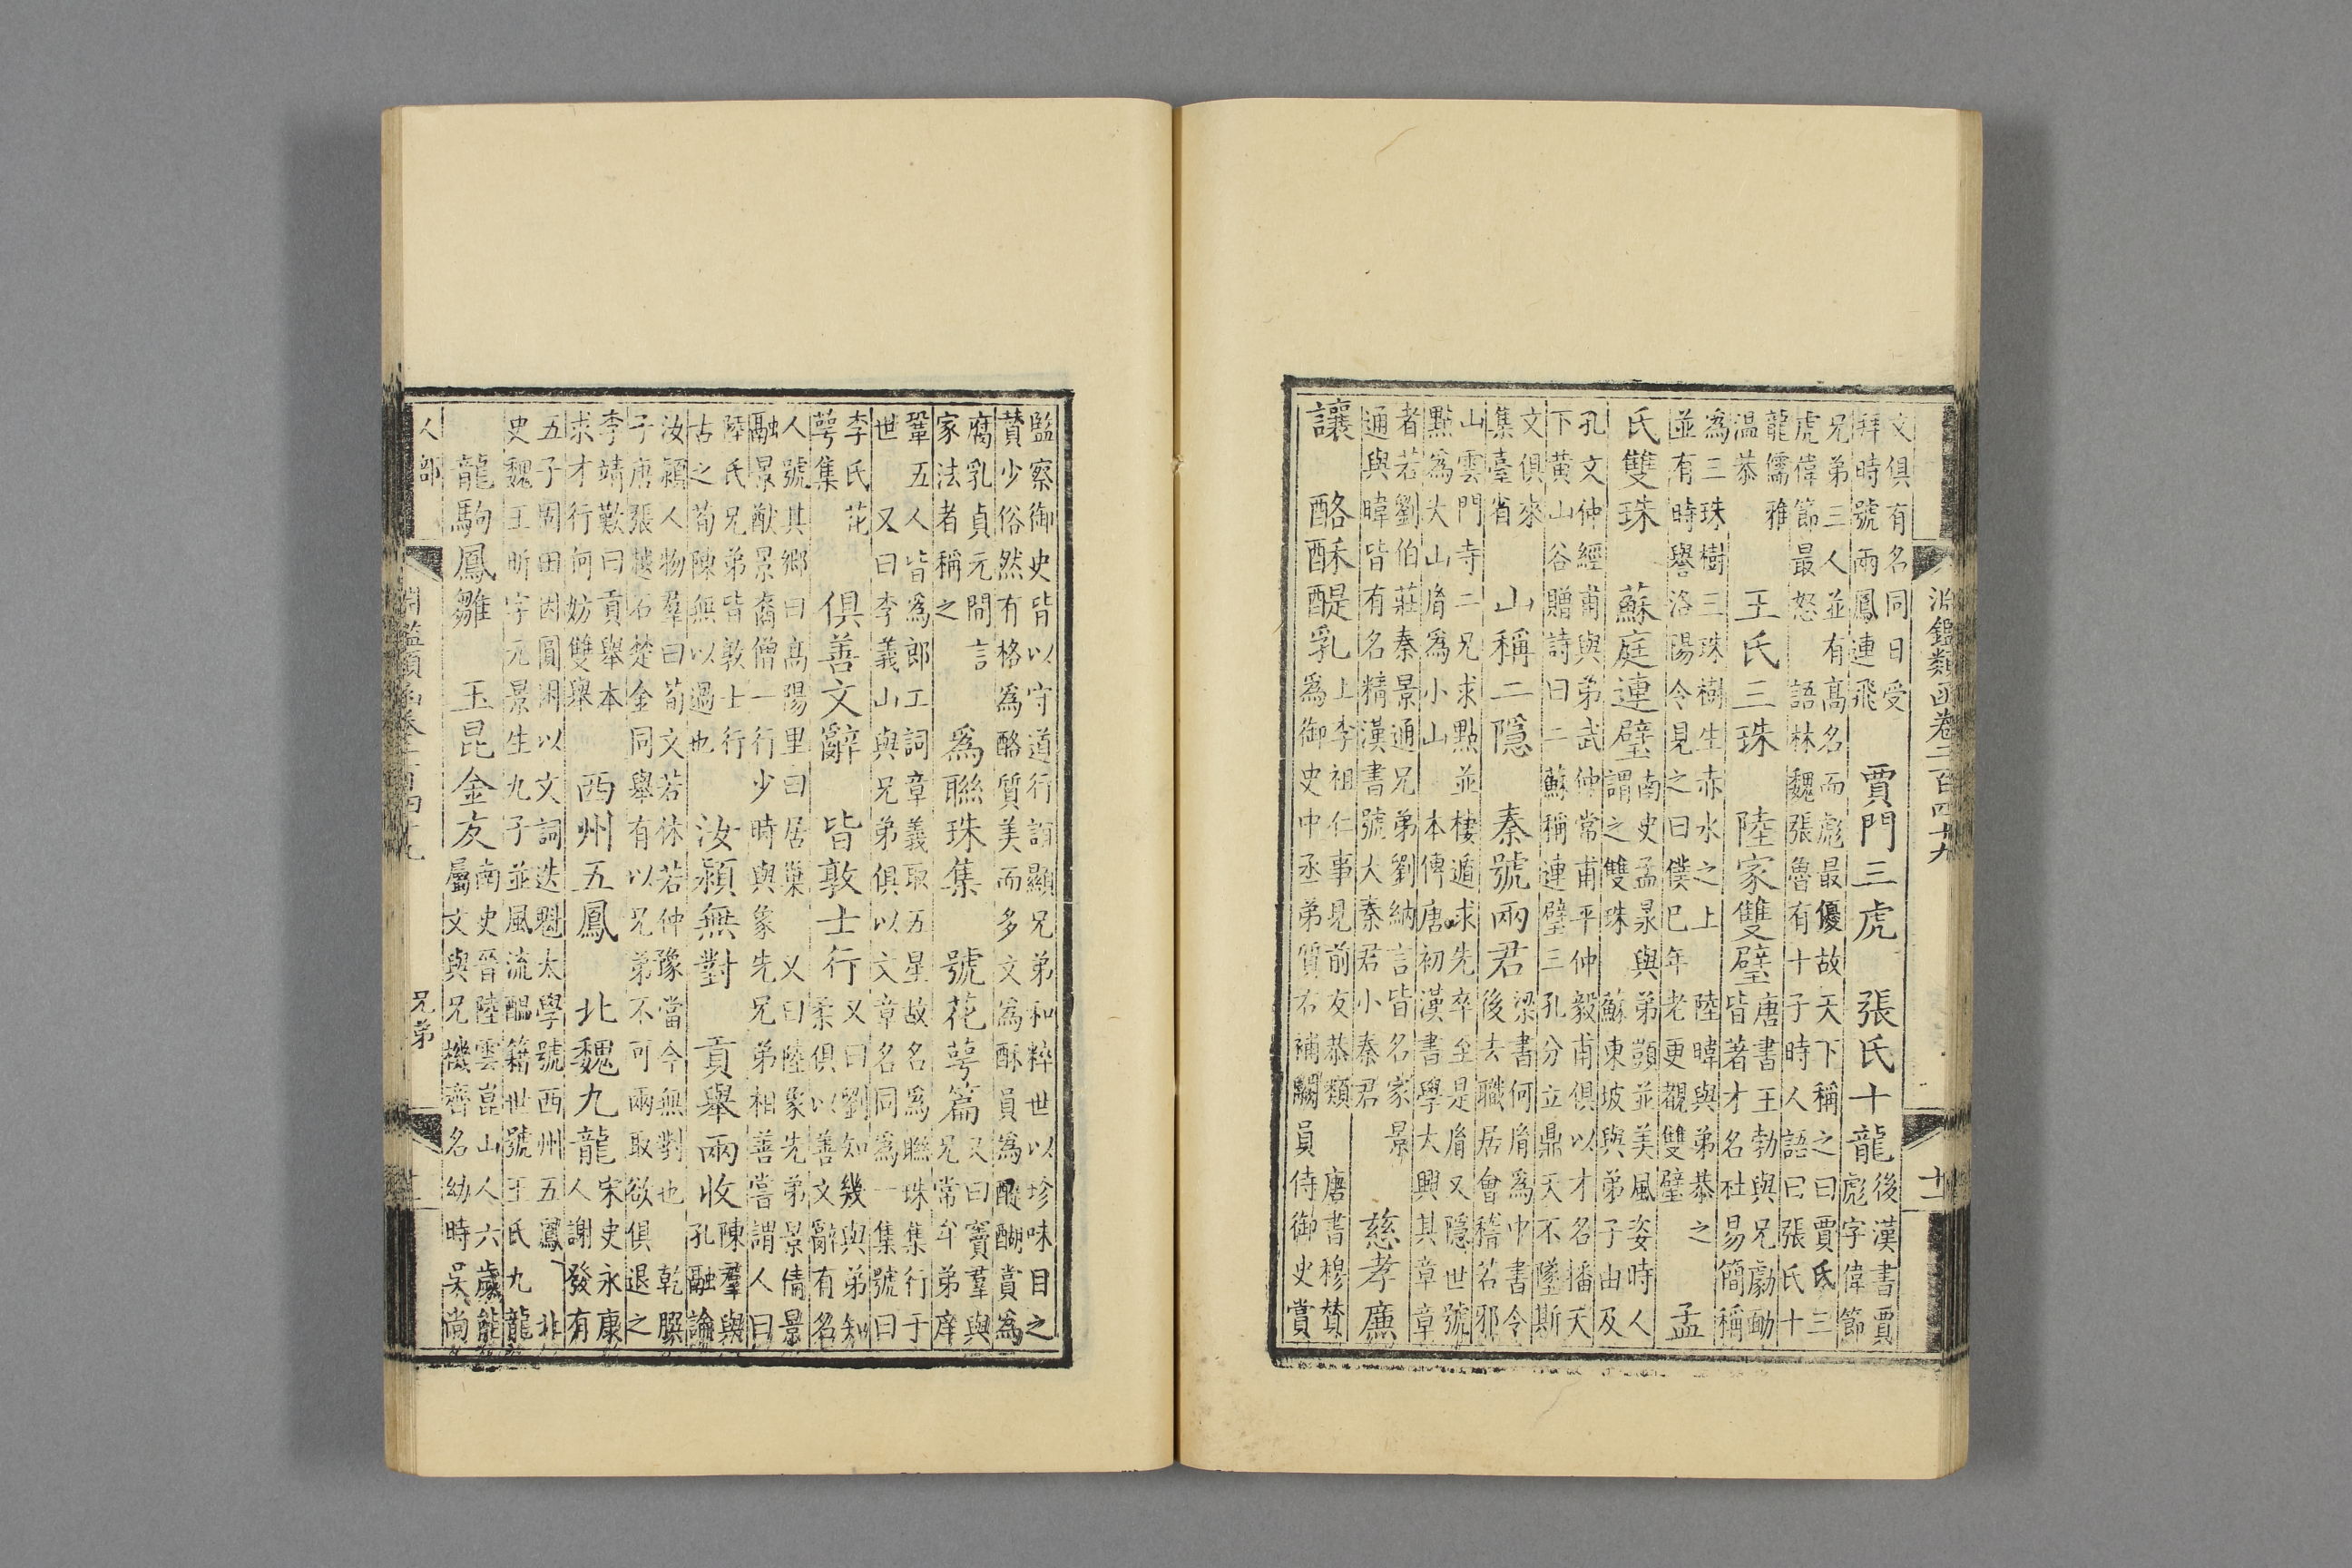 淵鑑類函卷二百四十九　十二
文俱有名同日受
拜時號兩鳳連飛
賈門三虎　張氏十龍
後漢書賈
彪字偉節
兄弟三人並有髙名而彪最優故天下稱之曰賈氏三
虎偉節最怒　語林魏張魯有十子時人語曰張氏十
龍儒雅
温恭
王氏三珠　陸家雙璧
唐書王勃與兄勮勔
皆著才名杜易簡稱
為三珠樹三珠樹生赤水之上　陸暐與弟恭之
並有時譽洛陽令見之曰僕已年老更觀雙璧
孟
氏雙珠　蘇庭連璧
南史孟㬎與弟顗並美風姿時人
謂之雙珠　蘇東坡與弟子由及
孔文仲經甫與弟武仲常甫平仲毅甫俱以才名播天
下黄山谷贈詩曰二蘇稱連璧三孔分立鼎天不墜斯
文俱來
集臺省
山稱二隱　秦號兩君
梁書何胤為中書令
後去職居會稽若邪
山雲門寺二兄求點並棲遁求先卒至是胤又隱世號
點為大山胤為小山　本傳唐初漢書學大興其章章
者若劉伯莊秦景通兄弟劉納言皆名家景
通與暐皆有名精漢書號大秦君小秦君
慈孝廉
讓　酪酥醍乳
上李祖仁事見前友恭類　唐書穆贊
為御史中丞弟質右補闕員侍御史賞
監察御史皆以守道行誼顯兄弟和粹世以珍味目之
贊少俗然有格為酪質美而多文為酥員為醍醐賞為
腐乳貞元間言
家法者稱之
為聯珠集　號花萼篇
又曰竇羣與
兄常牟弟庠
鞏五人皆為郎工詞章義取五星故名為聯珠集行于
世　又曰李義山與兄弟俱以文章名同為一集號曰
李氏花
萼集
俱善文辭　皆敦士行
又曰劉知幾與弟知
柔俱以善文辭有名
人號其鄉曰髙陽里曰居巢　又曰陸象先弟景倩景
融景猷景裔僧一行少時與象先兄弟相善嘗謂人曰
陸氏兄弟皆敦士行
古之荀陳無以過也
汝潁無對　貢舉兩收
陳羣與
孔融論
汝潁人物羣曰荀文若休若仲豫當今無對也　乾𦠆
子唐張越石楚金同舉有以兄弟不可兩取欲俱退之
李靖歎曰貢舉本
求才行何妨雙舉
西州五鳳　北魏九龍
宋史永康
人謝發有
五子固田因圓淵以文詞迭魁太學號西州五鳳　北
史魏王昕字元景生九子並風流醞籍世號王氏九龍
龍駒鳳雛　玉昆金友
南史晉陸雲崑山人六歲能
屬文與兄機齊名幼時吳尚
人部　淵鑑類函卷二百四十九　兄弟　十二